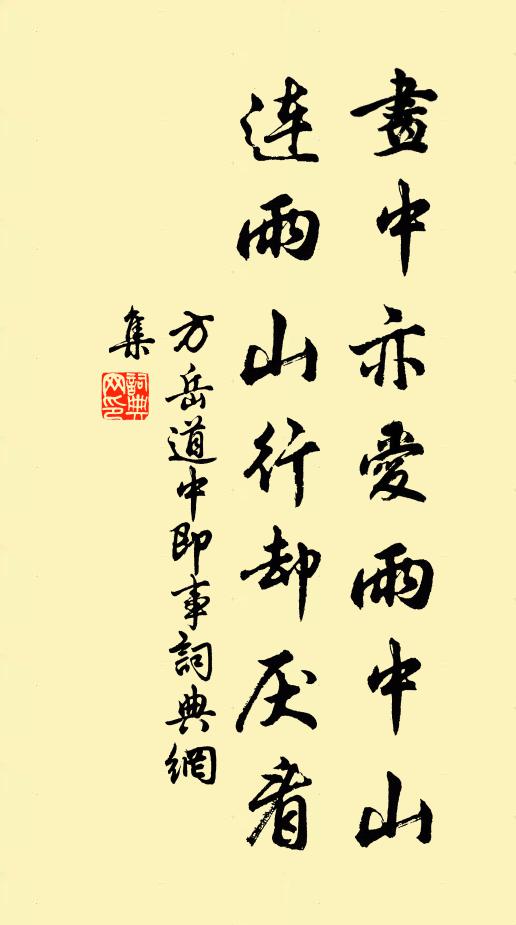 畫中亦愛雨中山
连雨山行却厌看
方岳道中即事詞典網
集
詞典
网印